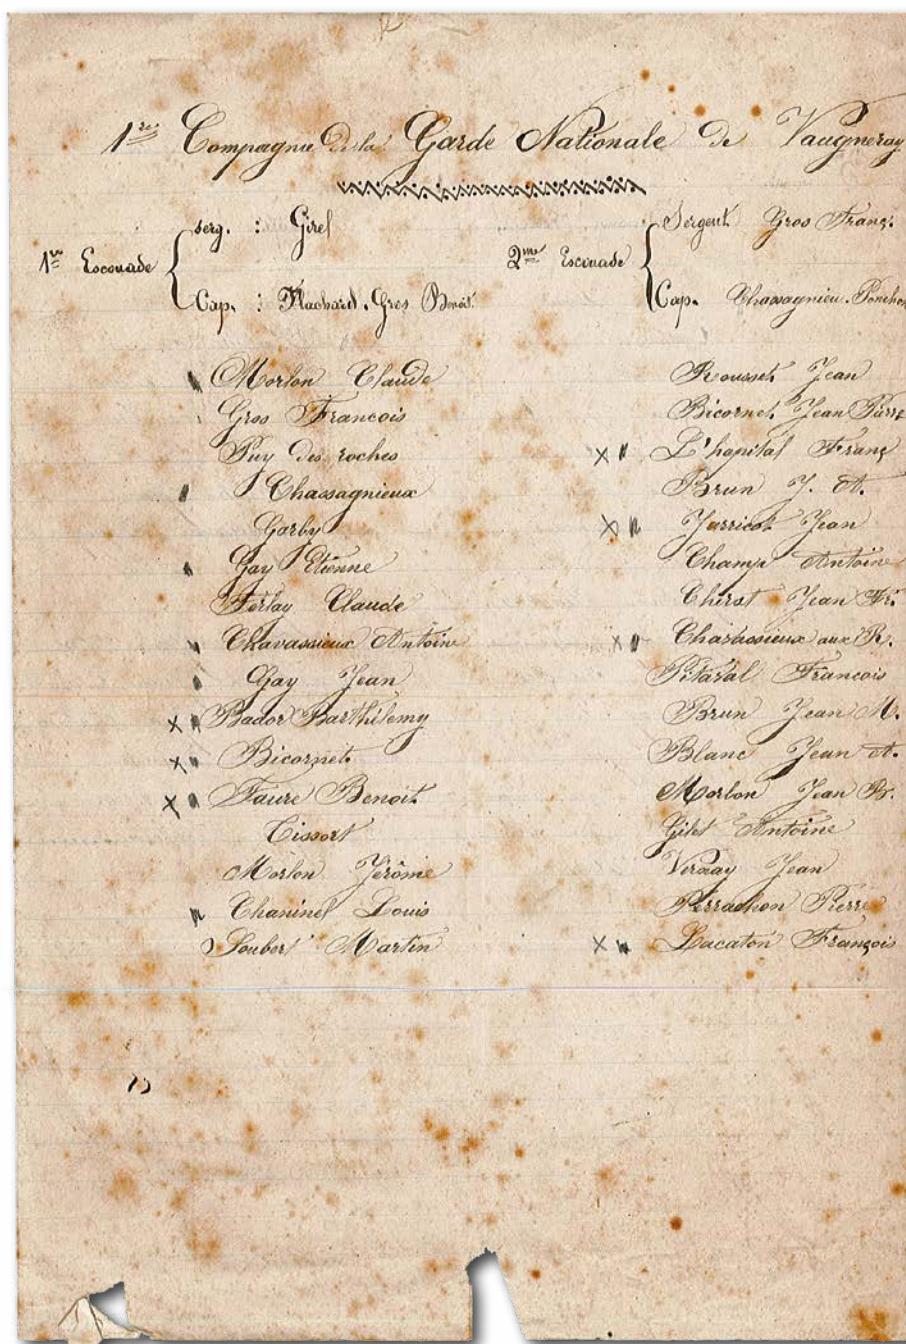 1re Compagnie de la Garde Nationale de Vaugneray
1re Escouade
serg. : Girel
Cap. : Flachard. Gros Benoit
Morlon Claude
Gros Francois
Puy des roches
Chassagnieux
Gorby
Gay Etienne
Ferlay Claude
Chavassieux Antoine
Gay Jean
X Bador Barthélemy
X Bicornet
X Faure Benoit
Cissort
Morlon Jérôme
Chaninel Louis
Joubert Martin
2me Escouade
Sergent Gros Franç.
Cap. Chassagnieu. Ponchon
Rousset Jean
Bicornet Jean Pierre
X L'hopital Franç
Brun J. A.
X Jarricot Jean
Champ Antoine
Chirat Jean Fr.
X aux R.
Pitaval Francois
Brun Jean M.
Blanc Jean A.
Morlon Jean B.
Gilet Antoine
Vernay Jean
Perrachon Pierre
X Lacaton François